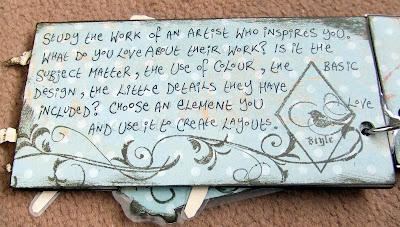 Study the work of an artist who inspires you.
What do you love about their work? Is it the
subject matter, the use of colour, the basic
design, the little details they have
included? Choose an element you love
and use it to create layouts.
Style